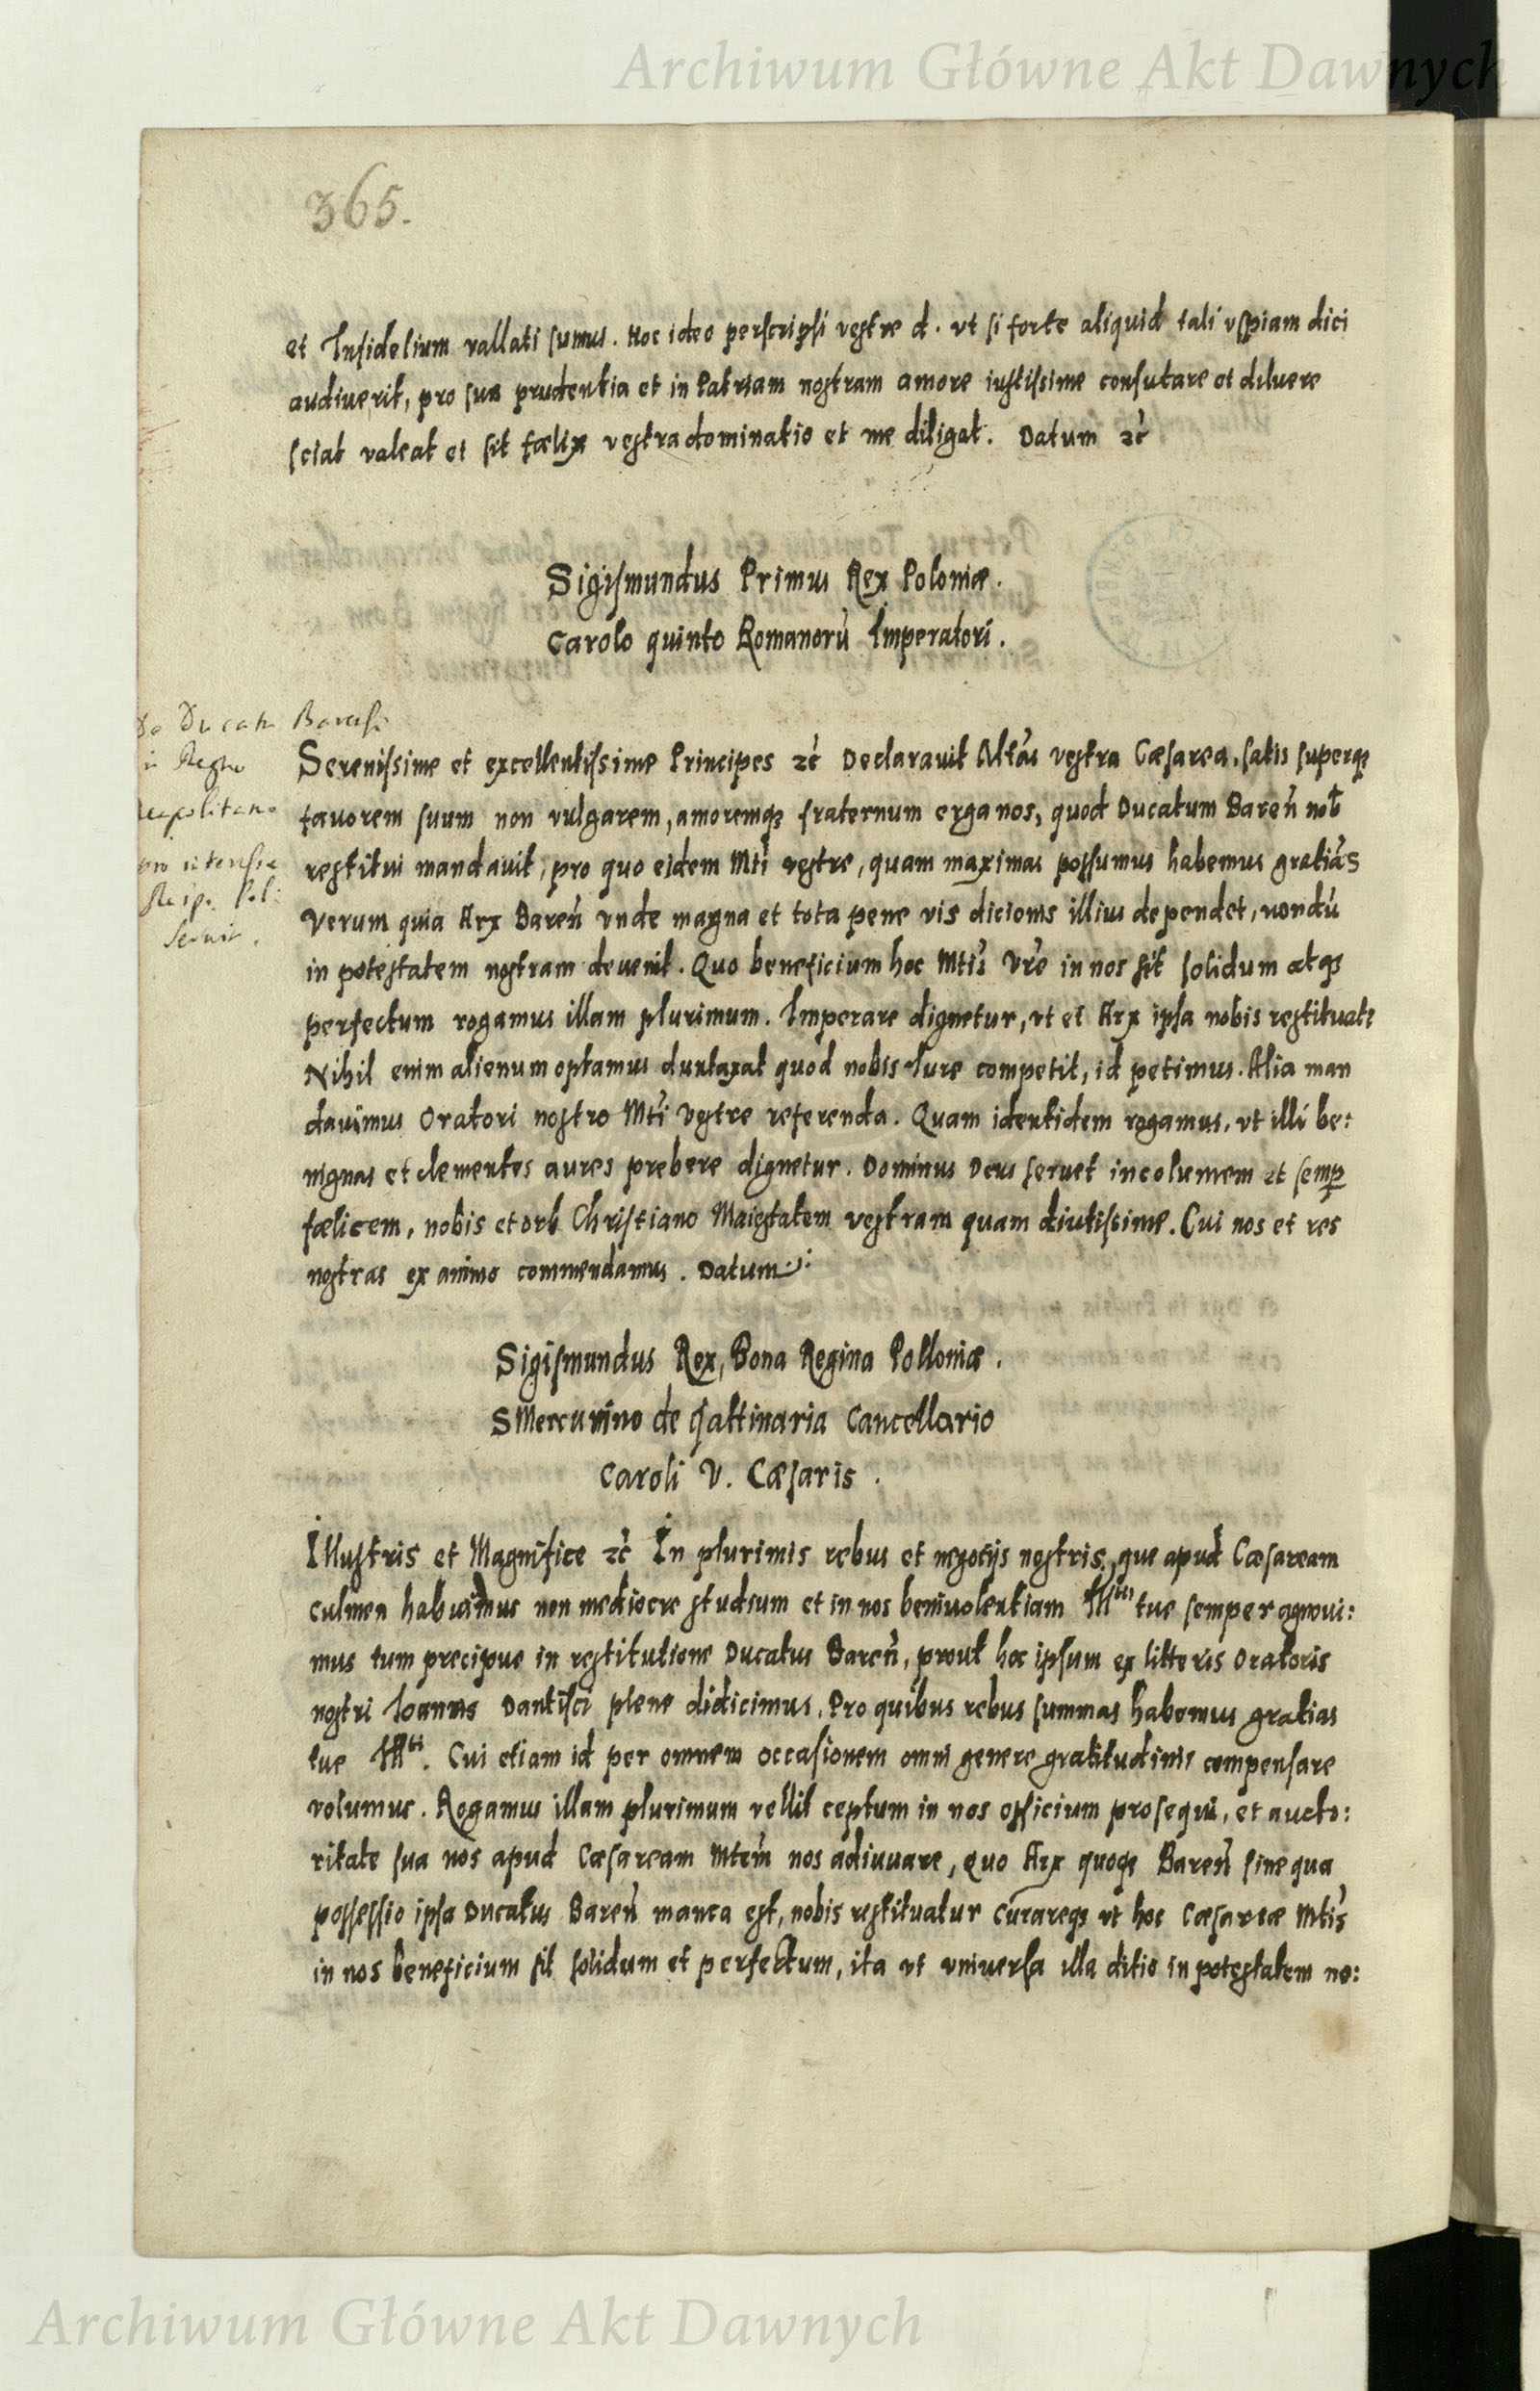 Archiwum Główne Akt Dawnych
365.
et Infidelium vallati sumus. Hoc ideo perscripsi vestre d. vt si forte aliquid tali vspiam dici
audiuerit, pro sua prudentia et in Patriam nostram amore iustissime confutare et diluere
sciat valeat et sit fœlix vestra dominatio et me diligat. Datum ⁊c̃
Sigismundus Primus Rex Poloniæ.
Carolo quinto Romanorũ Imperatori.
De Ducatu Barensi
in Regno
neapolitano
pro
Reip. Pol:
Serenissime et excellentissime Principes ⁊c̃ Declarauit Altãs vestra Cæsarea, satis superqꝫ
fauorem suum non vulgarem, amoremqꝫ fraternum erga nos, quod Ducatum Bareñ nob̃
restitui mandauit, pro quo eidem Mti̇ vestre, quam maximas possumus habemus gratias
Verum quia Arx Bareñ vnde magna et tota pene vis dicionis illius dependet, nondũ
in potestatem nostram deuenit. Quo beneficium hoc Mtis̃ Vr̃e in nos sit solidum atqꝫ
perfectum rogamus illam plurimum. Imperare dignetur, vt et Arx ipsa nobis restituatr
Nihil enim alienum optamus duntaxat quod nobis Iure competit, id petimus. Alia man
dauimus Oratori nostro Mti̇ Vestre referenda. Quam identidem rogamus, vt illi be:
nignas et clementes aures prebere dignetur. Dominus Deus seruet incolumem et semꝑ
fœlicem, nobis et orb Christiano Maiestatem vestram quam diutissime. Cui nos et res
nostras ex animo commendamus. Datum
Sigismundus Rex, Bona Regina Polloniæ.
SMercurino de Gattinaria Cancellario
Caroli V. Cæsaris.
Illustris et Magnifice ⁊c̃ In plurimis rebus et negotijs nostris, que apud Cæsaream
culmen habuimus non mediocre studium et in nos beniuolentiam Mtis tue semper agnoui:
mus tum precipue in restitutione Ducatus Bareñ, prout hoc ipsum ex litteris Oratoris
nostri Ioannis Dantisci plene didicimus. Pro quibus rebus summas habemus gratias
tue Mti. Cui etiam id per omnem occasionem omni genere gratitudinis compensare
volumus. Rogamus illam plurimum vellit ceptum in nos officium prosequi, et aucto:
ritate sua nos apud Cæsaream Mtem̃ nos adiuuare, quo Arx quoqꝫ Bareñ sine qua
possessio ipsa Ducatus Bareñ manca est, nobis restituatur curareqꝫ vt hoc Cæsareæ Mtis̃
in nos beneficium sit solidum et perfectum, ita vt vniuersa illa ditio in potestatem no:
Archiwum Główne Akt Dawnych